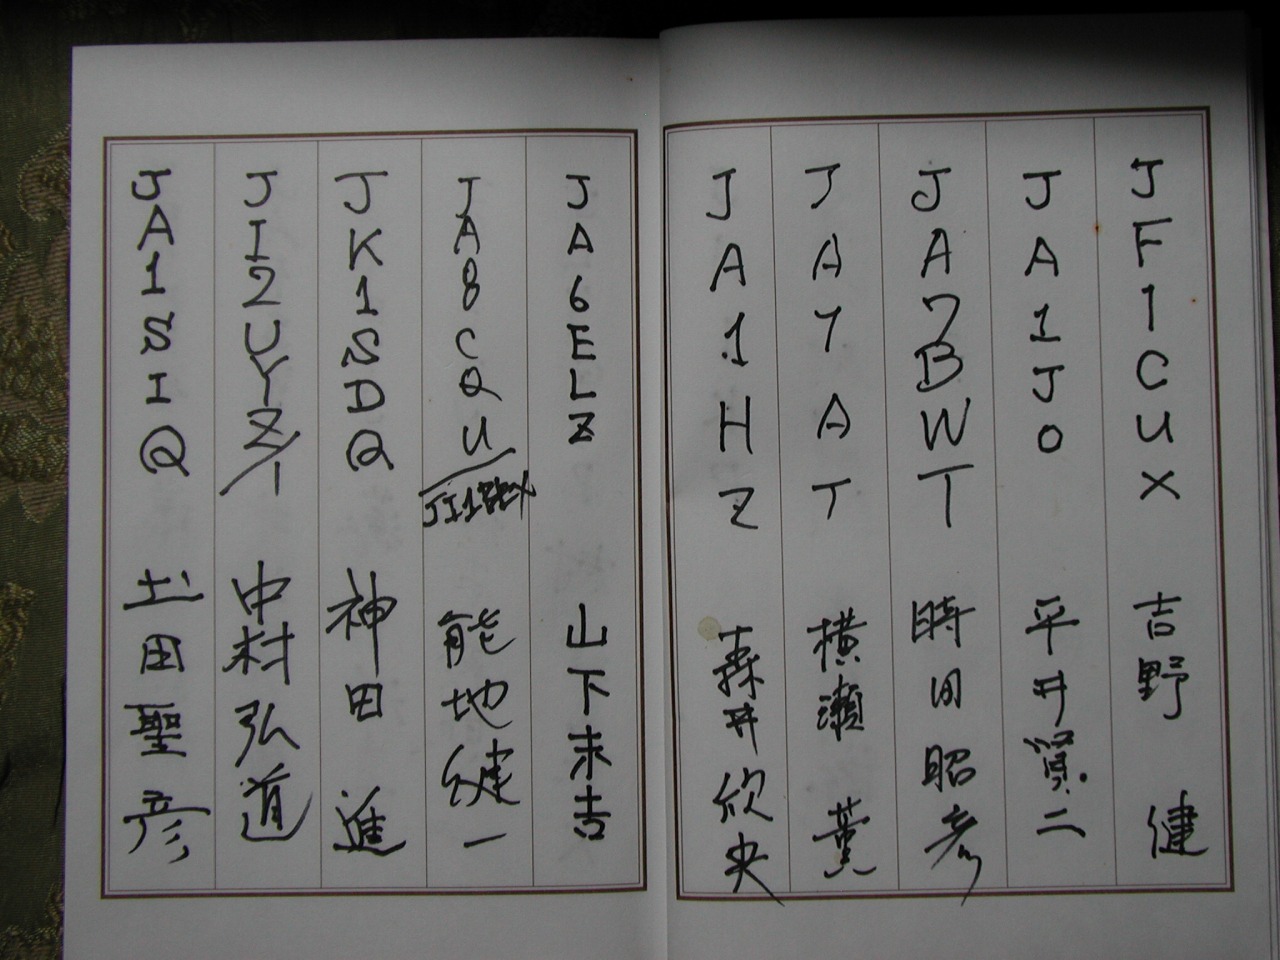 JF1CUX 吉野 健
JA1JO 平井賢二
JA7BWT 時田昭彦
JA7AT 横瀬 薫
JA1HZ 森井欣央
JA6ELZ 山下末吉
JA8CQU/ 能地健一
JK1SDQ 神田 進
JI2UYZ/1 中村弘道
JA1SIQ 土田聖彦